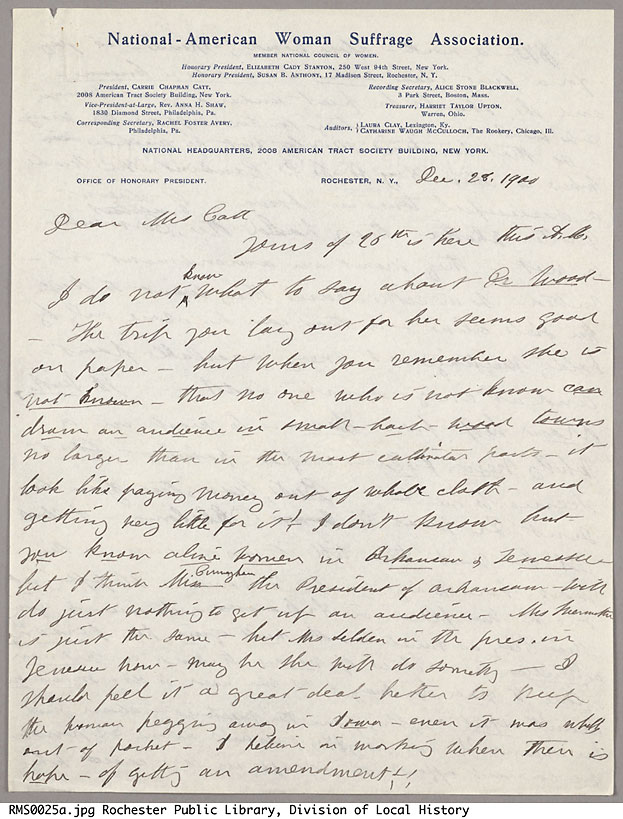 National-American Woman Suffrage Association.
MEMBER NATIONAL COUNCIL OF WOMEN.
Honorary President, ELIZABETH CADY STANTON, 250 West 94th Street, New York.
Honorary President, SUSAN B. ANTHONY, 17 Madison Street, Rochester, N. Y.
President, CARRIE CHAPMAN CATT,
2008 American Tract Society Building, New York.
Vice-President-at-Large, REV. ANNA H. SHAW,
1830 Diamond Street, Philadelphia, Pa.
Corresponding Secretary, RACHEL FOSTER AVERY,
Philadelphia, Pa.
Recording Secretary, ALICE STONE BLACKWELL,
3 Park Street, Boston, Mass.
Treasurer, HARRIET TAYLOR UPTON,
Warren, Ohio.
Auditors, LAURA CLAY, Lexington, Ky.
CATHARINE WAUGH McCULLOCH, The Rookery, Chicago, Ill.
NATIONAL HEADQUARTERS, 2008 AMERICAN TRACT SOCIETY BUILDING, NEW YORK.
OFFICE OF HONORARY PRESIDENT. ROCHESTER, N. Y., Dec. 28, 1900
Dear Mrs Catt
Yours of 26th is here this
I do not know what to say about Dr Wood-
- The trip you lay out for her seems good
on paper - but when you remember she is
not known - that no one who is not know can
draw an audience in small - back - wood towns
no larger than in the most parts - it
look like paying money out of whole cloth - and
getting very little for it! I don't know but
you know alive women in Arkansas & Tennessee
but I think Miss the President of Arkansas - will
do just nothing to get up an audience - Mrs
is just the same - but Mrs Selden in the pres. in
Tenessee now - may be she will do somethg - I
should feel it a great deal better to keep
the woman pegging away in Iowa - even it was wholly
out of pocket - I believe in working when there is
hope - of getting an amendment!!
RMS0025a.jpg Rochester Public Library, Division of Local History